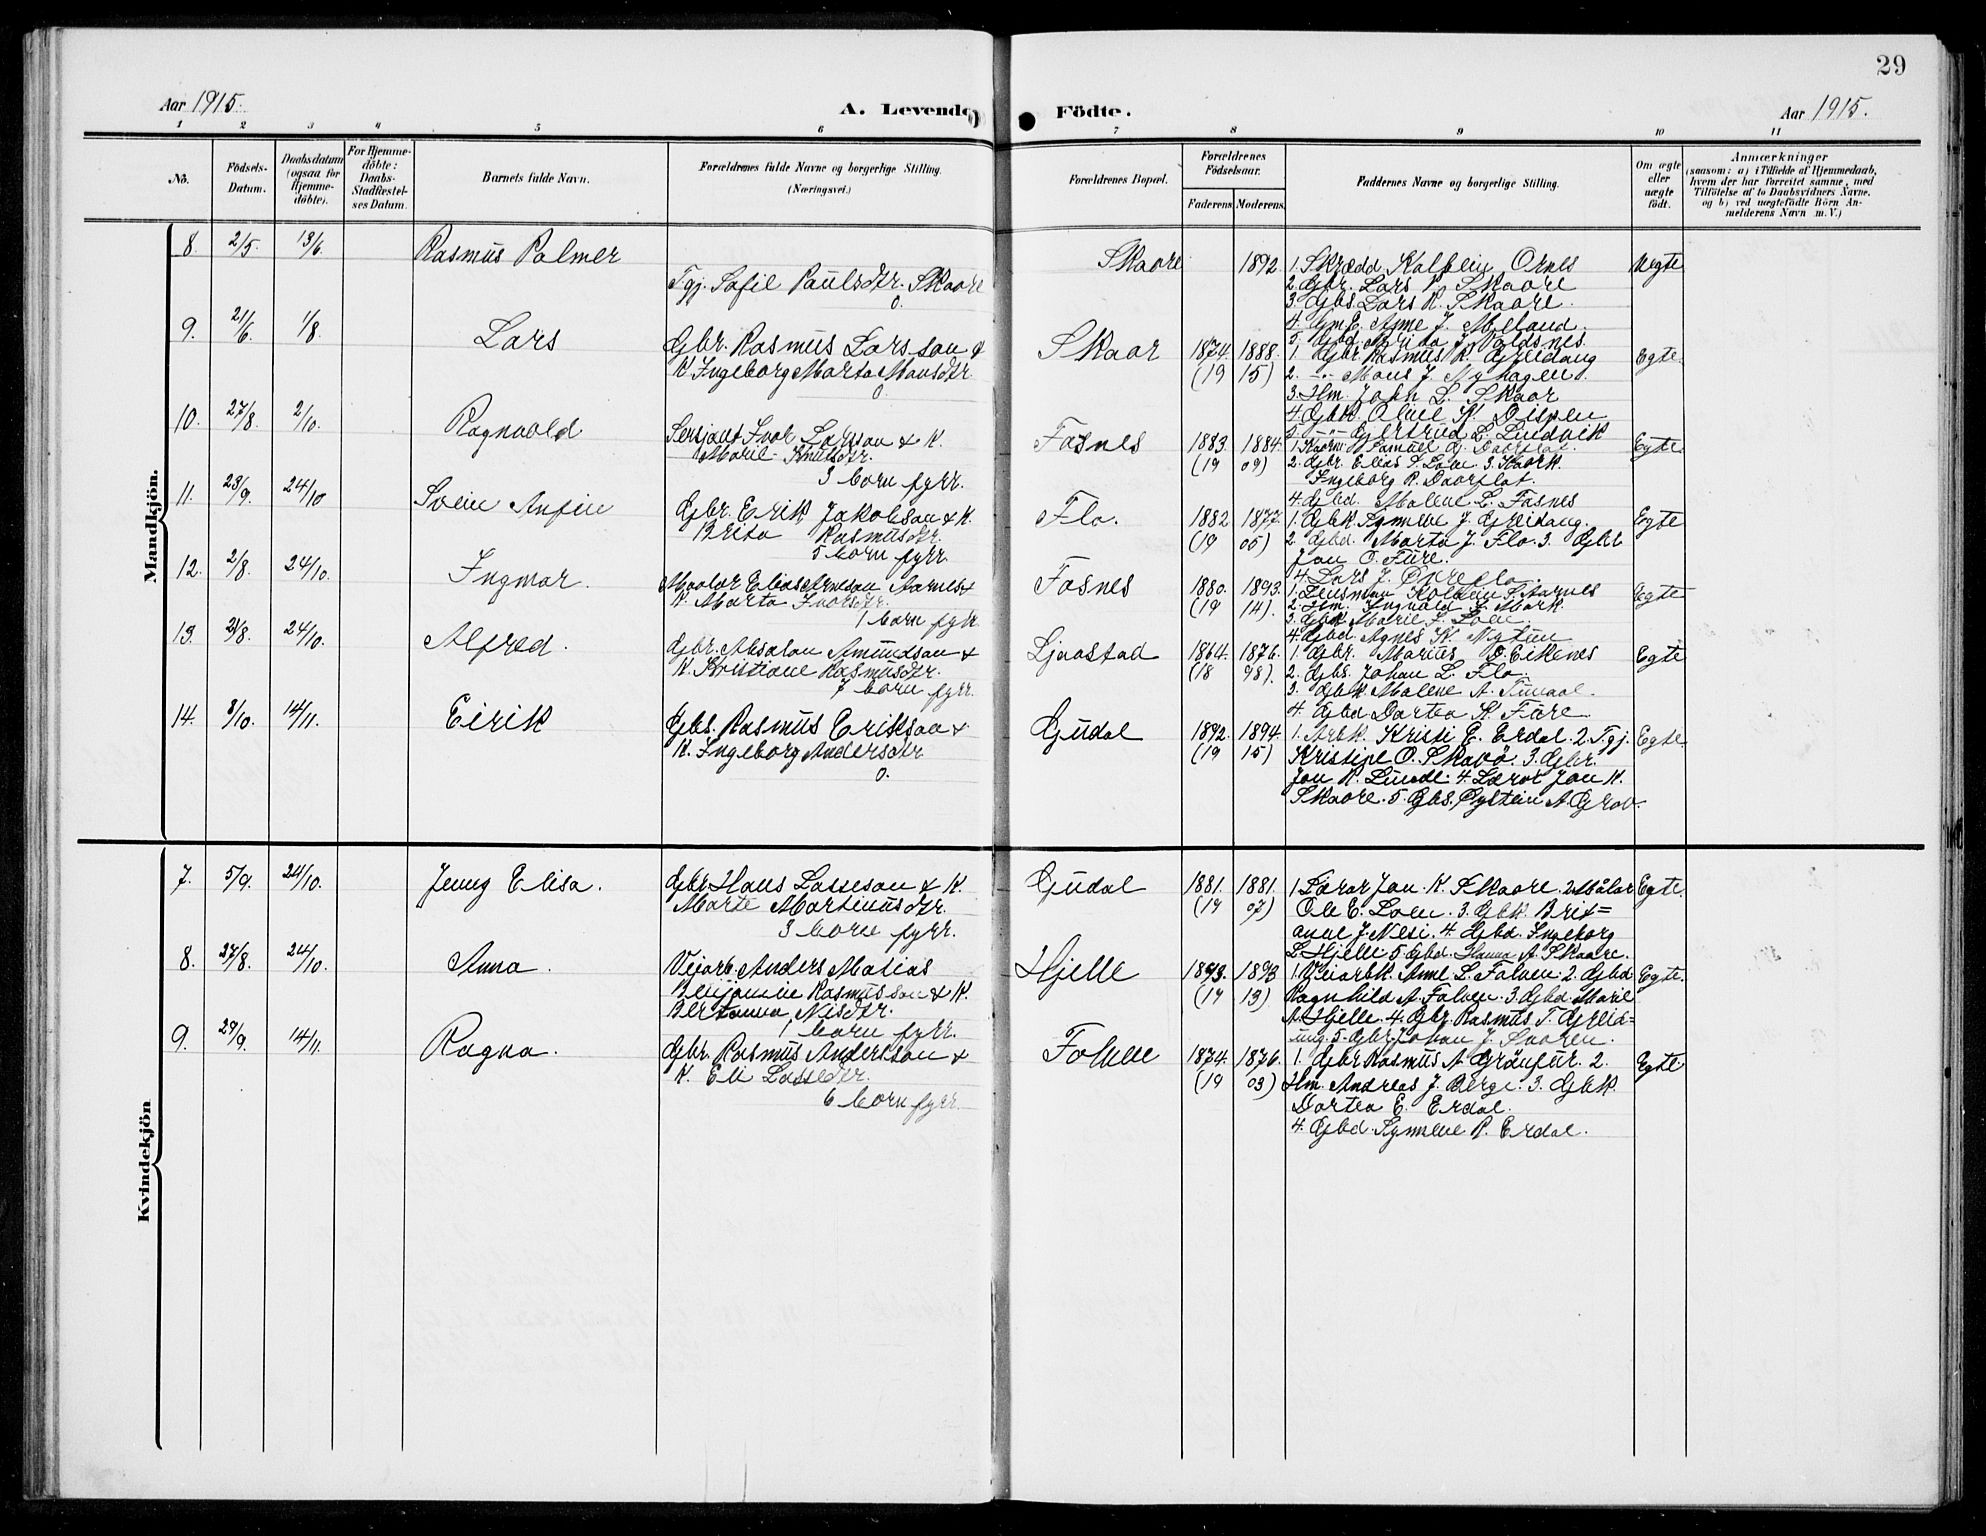 29
Aar 1915.
A. Levende Födte.
Aar 1915.
1 2 3 4 5 6 7 8 9 10 11
No.
Födsels-Datum.
Daabsdatum (ogsaa for Hjemme-döbte).
For Hjemme-döbte: Daabs-Stadfæstel-ses Datum.
Barnets fulde Navn.
Forældrenes fulde Navne og borgerlige Stilling. (Næringsvei.)
Forældrenes Bopæl.
Forældrenes Födselsaar.
Faderens. Moderens.
Faddernes Navne og borgerlige Stilling.
Om ægte eller uægte födt.
Anmærkninger
(saasom: a) i Tilfælde af Hjemmedaab,
hvem der har forrettet samme, med
Tilföielse af to Daabsvidners Navne.
og b) ved uægtefödte Börn An-
melderens Navn m. V.)
Mandkjön.
8. 2/5. 13/6. Rasmus Palmer
Tgj. Sofie Paulsdtr. Skaare
0.
Skaare 1892
1. Skrædd Kolbein Ornes
2. Gbr. Lars P. Skaare
3. Gbs. Lars R. Skaare.
4. Gm.E. Anne J. Melland.
5. Gbd. Brita J. Valdsnes.
Uegte
9. 21/6. 1/8. Lars
Gbr. Rasmus Larsson &
K. Ingeborg Marta Monsdtr.
0.
Skaar 1874. 1888.
(19 15)
1. Gbr. Rasmus R. Greidung
2. -"- Mons J. Myhagen.
3. Hm. John L. Skaar
4. Gbk. Oline K. Dispen
5. -"- Gjertrud L. Lundvik
Egte.
10. 27/8. 2/10. Ragnvald
Sersjant Ivar Larsson & K.
Marie Knutsdtr.
3 born fyrr.
Fosnes 1883. 1884.
(19 09)
2. Gbr. Elias S. Loen 3. Kaark.
Ingeborg R. Daorflot.
4. Gbd. Malene L. Fosnes
Egte
11. 23/9. 24/10 Svein Anfin
Gbr. Erik Jakobson & K.
Brita Rasmusdtr.
5 born fyrr.
Flo. 1882 1877.
(19 05)
1. Gbk. Synneve J. Greidung.
2. Gbd. Marta J. Flo. 3. Gbr
Jon O. Fure.
4. Lars J. Övreflo.
Egte
12. 2/8. 24/10. Ingmar.
Maalar Elias Arneson Aarnes &
K. Marta Ivarsdtr.
1 born fyrr.
Fosnes 1880. 1893.
(19 14).
1. Lensmann Kolbein S. Aarnes
2. Hm. Ingvald L. Mork.
3. Gbk. Marie S. Loen.
4. Gbd. Agnes K. Nytun
Egte
13. 21/8. 24/10. Alfred.
Gbr. Absalon Amundson &
K. Kristiane Rasmusdtr.
7 born fyrr.
Ljosstad 1864. 1876.
(18 98).
1. Gbr. Marius O. Eikenes
2. Gbs. Johan L. Flo.
3. Gbk. Malene A. Tunaal.
4. Gbd Dortea K. Fure.
Egte
14. 8/10. 14/11. Eirik
Gbs. Rasmus Erikson &
K. Ingeborg Andersdtr
0.
Gudal 1892. 1894.
(19 15)
1. Arbk. Kristi E. Erdal. 2. Tgj.
Kristine O. Skavö. 3. Gbr.
Jon R. Lunde. 4. Lærar Jon K.
Skaare. 5. Gbs. Öystein A. Grov.
Egte.
Kvindekjön
7. 5/9. 24/10. Jenny Elisa.
Gbr. Hans Lasseson & K.
Marte Martinusdtr.
3 born fyrr.
Gudal 1881. 1881.
(19 07)
1. Lærar Jon K. Skaare. 2. Målar
Ole E. Loen. 3. Gbk. Brit=
anne J. Nesi. 4. Gbd. Ingeborg
L. Hjelle 5. Gbd. Hanna A. Skaare.
Egte.
8. 27/8. 24/10. Anna.
Veiarb. Anders Matias
Benjamin Rasmusson & K.
Bertanna Nisdtr.
1 born fyrr.
Hjelle 1893. 1893
(19 13)
1. Veiarbk. Anne L. Folven. 2. Gbd
Ragnhild A. Folven. 3. Gbd. Marie
A. Hjelle. 4. Gbr. Rasmus T. Greid=
ung. 5. Gbr. Johan J. Svoren.
Egte.
9. 29/9. 14/11. Ragna.
Gbr. Rasmus Anderson &
K. Eli Lassedtr.
6 born fyrr.
Folven 1874. 1876.
(19 03)
1. Gbr Rasmus A. Gränfur. 2.
Hm. Andreas J. Berge. 3. Gbk.
Dortea E. Erdal.
4. Gbd. Synneve R. Erdal.
Egte